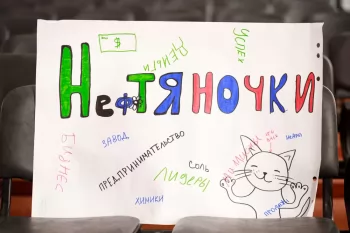 $
ДЕНЬГИ
УСПЕХ
НефТЯНОЧКИ
БИЗНЕС
ЗАВОД
ПРЕДПРИНИМАТЕЛЬСТВО
СОЛЬ
ЛИДЕРЫ
ХИМИКИ